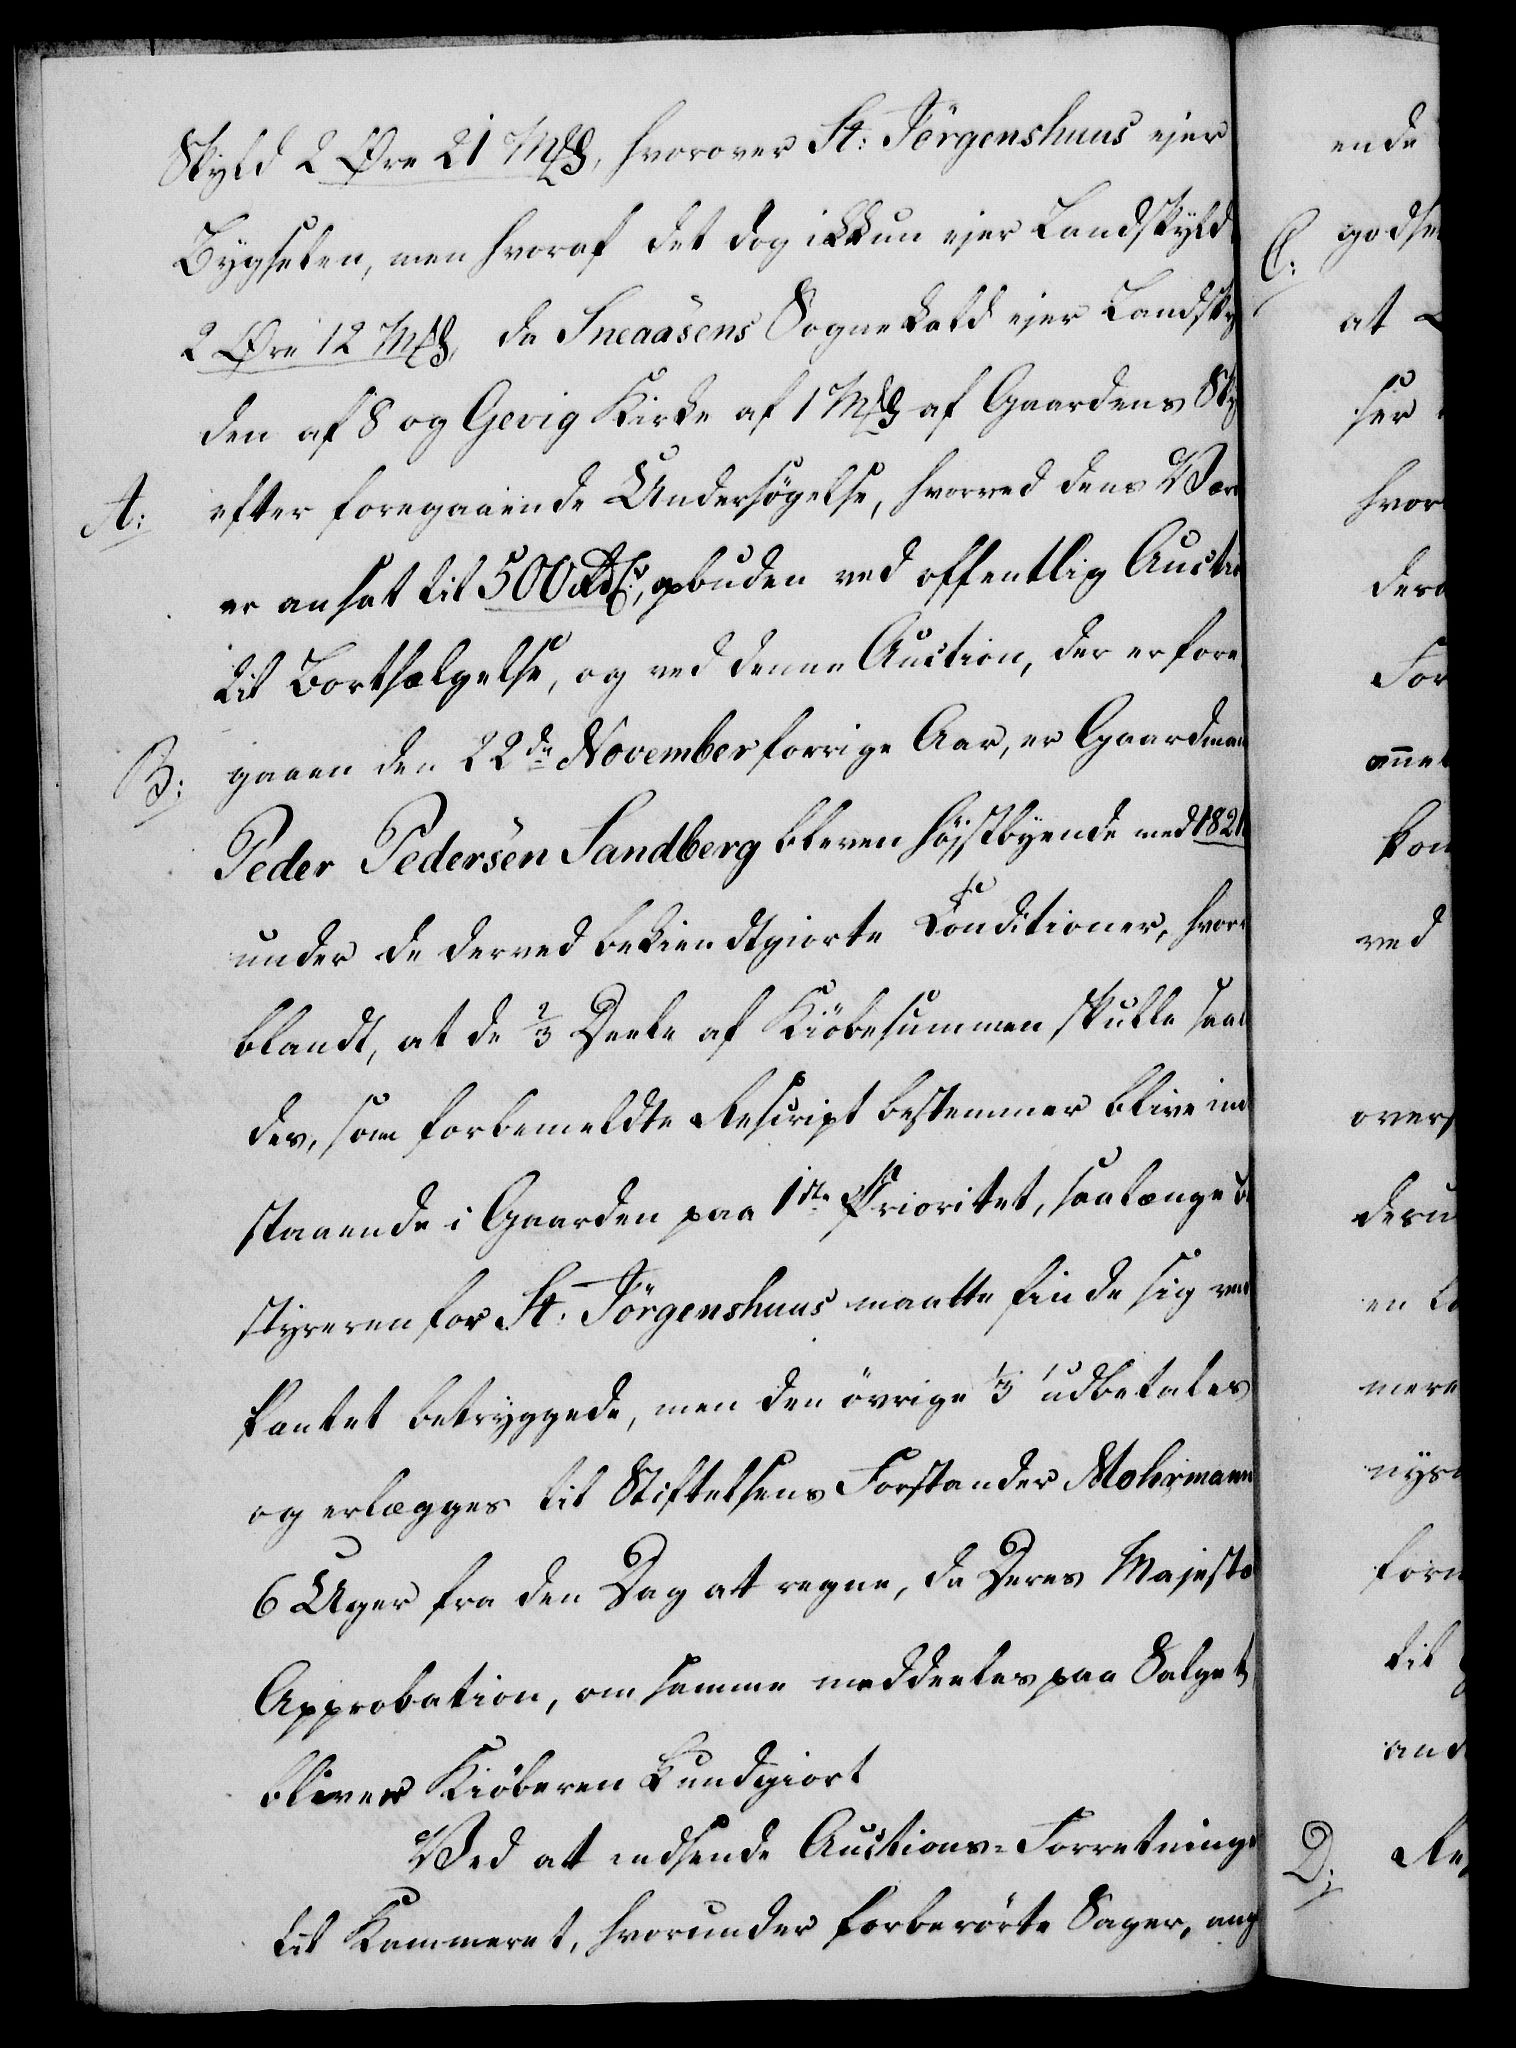 Skyld 2 Øre 21 Mkl, hvorover St: Jörgenshuus ejer
Bygselen, men hvoraf det dog ikkun ejer Landskyld
2 Øre 12 Mkl, da Sneaasens Sognekald ejer Landsky
den af 8 og Gevig Kirke af 1 Mkl af Gaardens Sky
A: efter foregaaende Undersögelse, hvorved dens Vær
er ansat til 500 Rd, gbuden ved offentlig Auct
til Bortsælgelse, og ved denne Auction, der er fore
B: gaaen den 22de November forrige Aar, er Gaardman
Peder Pedersen Sandberg bleven höjstbydende med 1821
under de derved bekiendtgiorte Conditioner, hvor
blandt, at de 2/3 Deele af Kiöbesummen skulle saal
des, som forbemeldte Rescript bestemmer blive ind
staaende i Gaarden paa 1ste Prioritet, saalænge
styreren for St. Jörgenshuus maatte finde sig ved
Pantet betryggede, men den övrige 1/3 udbetales
og erlægges til Stiftelsens Forstander Mohrmann
6 Uger fra den Dag att regne, da Deres Majestæ
Approbation, om samme meddeeles paa Salget
bliver Kiöberen kundgiort
Ved att indsende Auctions-Forretninge
til Kammeret, hvorunder forberörte Sager, ang
ende
C: godse
at
ser
hvor
dera
For
annet
kom
ved
overs
deru
en
mere
nys
form
til
and
D: Re